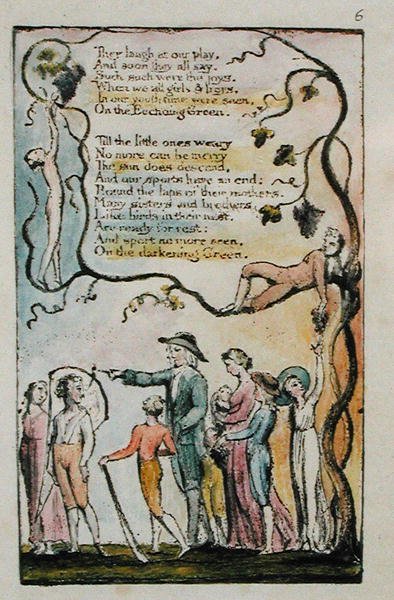 6
They laugh at our play,
And soon they all say,
Such such were the joys,
When we all girls & boys,
In our youth time were seen,
On the Ecchoing Green.
Till the little ones weary
No more can be merry
The sun does descend,
And our sports have an end:
Round the laps of their mothers,
Many sisters and brothers,
Like birds in their nest,
Are ready for rest:
And sport no more seen,
On the darkening Green.